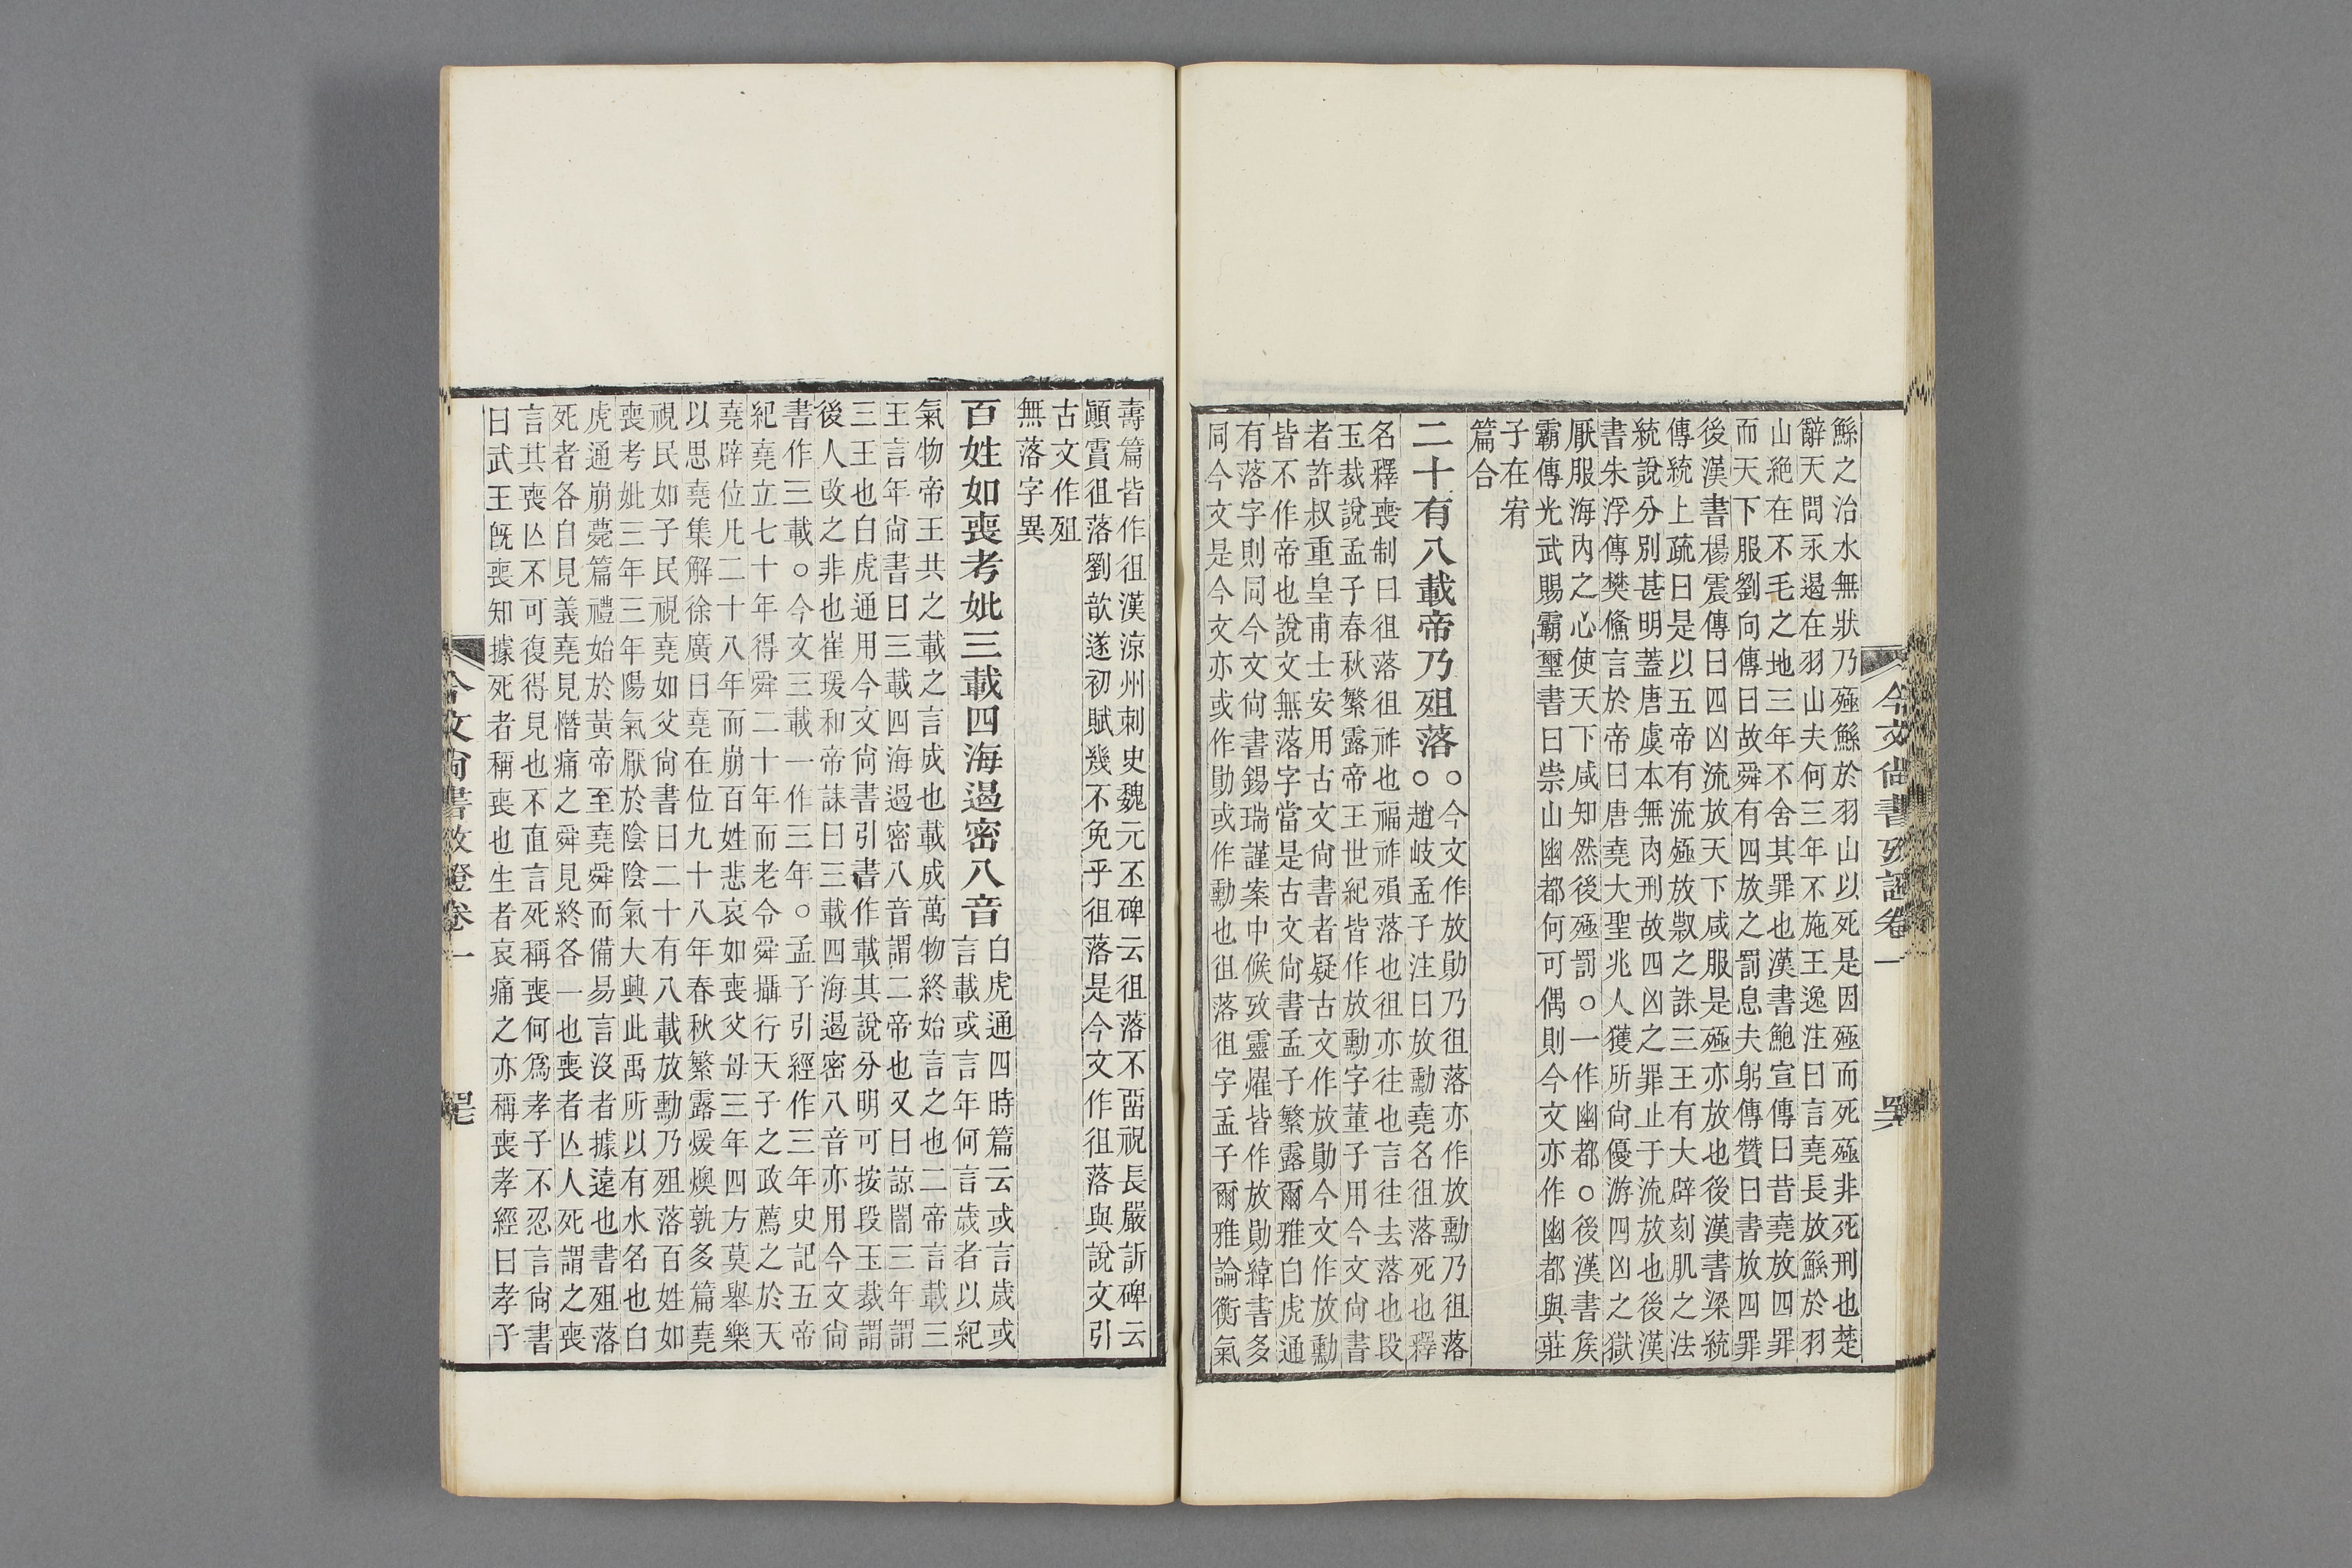 今文尚書攷證卷一
鯀之治水無狀乃殛鯀於羽山以死是因殛而死殛非死刑也楚
辭天問永遏在羽山夫何三年不施王逸注曰言堯長放鯀於羽
山絶在不毛之地三年不舍其罪也漢書鮑宣傳曰昔堯放四罪
而天下服劉向傳曰故舜有四放之罰息夫躬傳贊曰書放四罪
後漢書楊震傳曰四凶流放天下咸服是殛亦放也後漢書梁統
傳統上疏曰是以五帝有流殛放殺之誅三王有大辟刻肌之法
統說分別甚明蓋唐虞本無肉刑故四凶之罪止于流放也後漢
書朱浮傳樊鯈言於帝曰唐堯大聖兆人獲所尙優游四凶之獄
厭服海內之心使天下咸知然後殛罰○一作幽都○後漢書矦
霸傳光武賜霸璽書曰崇山幽都何可偶則今文亦作幽都與莊
子在宥
篇合
二十有八載帝乃殂落
○今文作放勛乃徂落亦作放勳乃徂落
○趙岐孟子注曰放勳堯名徂落死也釋
名釋喪制曰徂落徂祚也福祚殞落也徂亦往也言往去落也段
玉裁說孟子春秋繁露帝王世紀皆作放勳字董子用今文尙書
者許叔重皇甫士安用古文尙書者疑古文作放勛今文作放勳
皆不作帝也說文無落字當是古文尙書孟子繁露爾雅白虎通
有落字則同今文尙書錫瑞謹案中候攷靈燿皆作放勛緯書多
同今文是今文亦或作勛或作勳也徂落徂字孟子爾雅論衡氣
壽篇皆作徂漢涼州刺史魏元丕碑云徂落不䍃祝長嚴訢碑云
顚霣徂落劉歆遂初賦幾不免乎徂落是今文作徂落與說文引
古文作殂
無落字異
百姓如喪考妣三載四海遏密八音
白虎通四時篇云或言歲或
言載或言年何言歲者以紀
氣物帝王共之載之言成也載成萬物終始言之也二帝言載三
王言年尙書曰三載四海遏密八音謂二帝也又曰諒闇三年謂
三王也白虎通用今文尙書引書作載其說分明可按段玉裁謂
後人改之非也崔瑗和帝誄曰三載四海遏密八音亦用今文尙
書作三載○今文三載一作三年○孟子引經作三年史記五帝
紀堯立七十年得舜二十年而老令舜攝行天子之政薦之於天
堯辟位凡二十八年而崩百姓悲哀如喪父母三年四方莫舉樂
以思堯集解徐廣曰堯在位九十八年春秋繁露煖燠孰多篇堯
視民如子民視堯如父尙書曰二十有八載放勳乃殂落百姓如
喪考妣三年三年陽氣厭於陰陰氣大興此禹所以有水名也白
虎通崩薨篇禮始於黃帝至堯舜而備易言沒者據遠也書殂落
死者各自見義堯見憯痛之舜見終各一也喪者亾人死謂之喪
言其喪亾不可復得見也不直言死稱喪何爲孝子不忍言尙書
曰武王旣喪知據死者稱喪也生者哀痛之亦稱喪孝經曰孝子
今文尙書攷證卷一